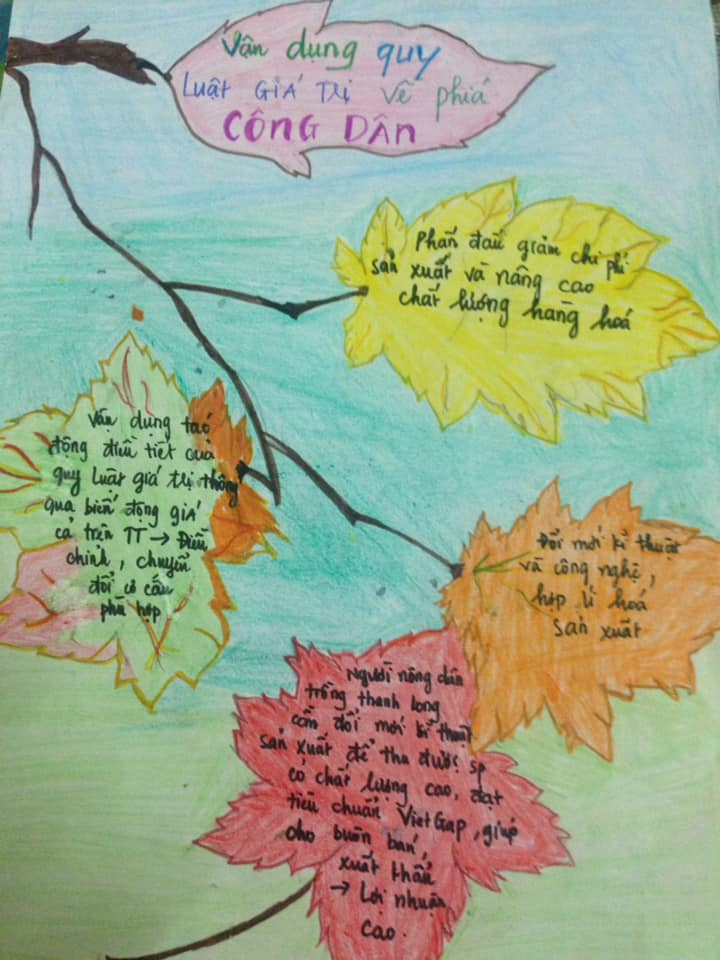 Vận dụng quy
Luật GIÁ TRỊ về phiá
CÔNG DÂN
Phấn đấu giảm chi phí
sản xuất và nâng cao
chất lượng hàng hoá
Vận dụng tác
động điều tiết của
quy luật giá trị thông
qua biến động giá
cả trên TT → Điều
chỉnh, chuyển
đổi cơ cấu
phù hợp
Đổi mới kĩ thuật
và công nghệ,
hợp lí hoá
sản xuất
Người nông dân
trồng thanh long
cần đổi mới kĩ thuật
sản xuất để thu được sp
có chất lượng cao, đạt
tiêu chuẩn VietGap, giúp
cho buôn bán,
xuất khẩu
→ Lợi nhuận
cao.